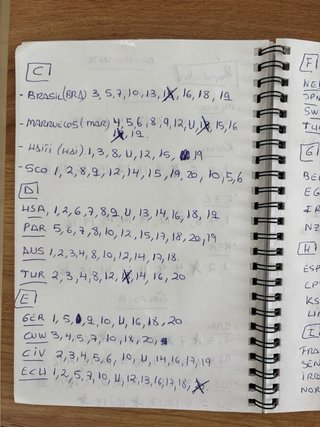 C
- BRASIL (BRA) 3, 5, 7, 10, 13, 16, 18, 19
- MARRUECOS (MAR) 4, 5, 6, 8, 9, 12, 11, 15, 16
19.
- HAITI (HAI) 1, 3, 8, 11, 12, 15, 19
- SCO 1, 2, 8, 9, 12, 14, 15, 19, 20, 10, 5, 6
D
USA, 1, 2, 6, 7, 8, 9, 11, 13, 14, 16, 18, 19
PAR 5, 6, 7, 8, 10, 12, 15, 17, 18, 20, 19
AUS 1, 2, 3, 4, 8, 10, 12, 14, 17, 18.
TUR 2, 3, 4, 8, 12, 14, 16, 20
E
GER 1, 5, 9, 10, 11, 16, 18, 20
CUW 3, 4, 5, 7, 10, 18, 20
CIV 2, 3, 4, 5, 6, 10, 11, 14, 16, 17, 19
ECU 1, 2, 5, 7, 10, 11, 12, 13, 16, 17, 18,
F
SW
TU
G
BE
EG
IR
NZ
H
ESP
KS
I
FRA
SEN
IRQ
NOR